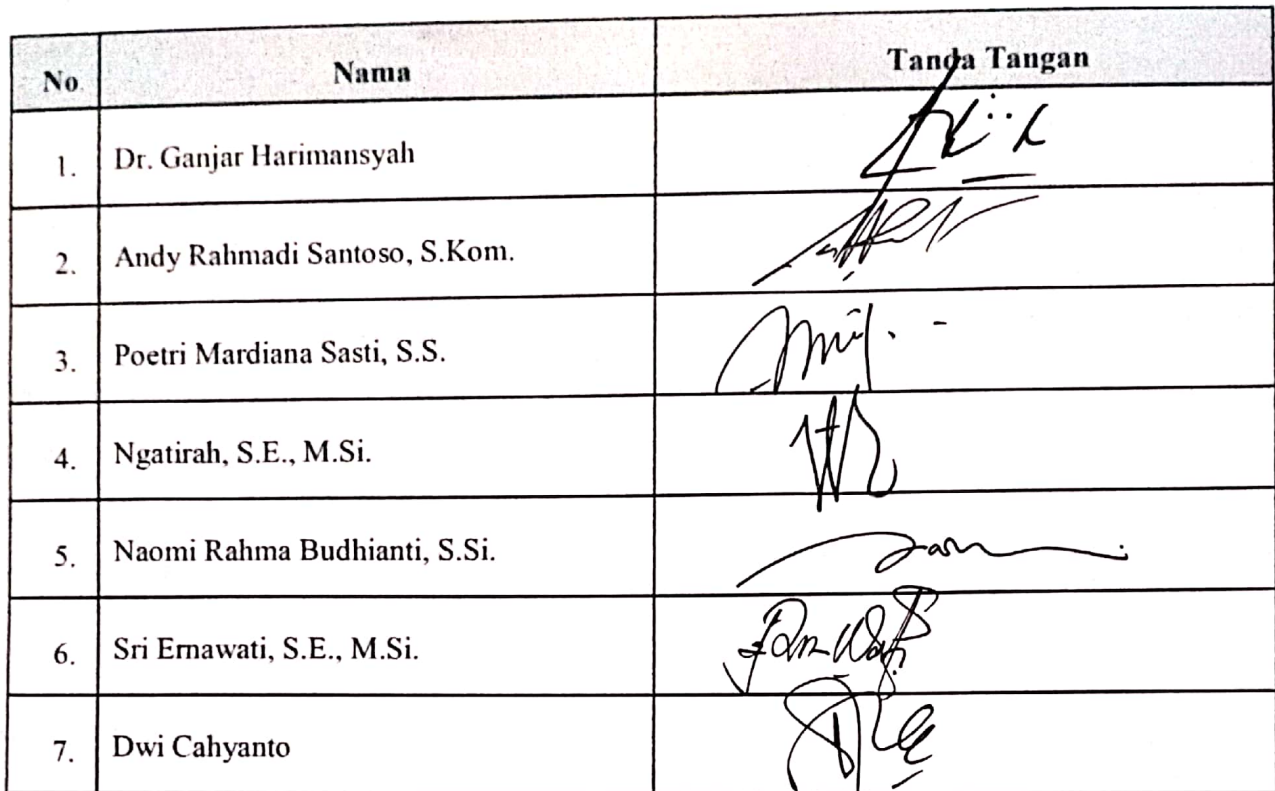 No Nama Tanda Tangan
1. Dr. Ganjar Harimansyah
2. Andy Rahmadi Santoso, S.Kom.
3. Poetri Mardiana Sasti, S.S.
4. Ngatirah, S.E., M.Si.
5. Naomi Rahma Budhianti, S.Si.
6. Sri Ernawati, S.E., M.Si.
7. Dwi Cahyanto